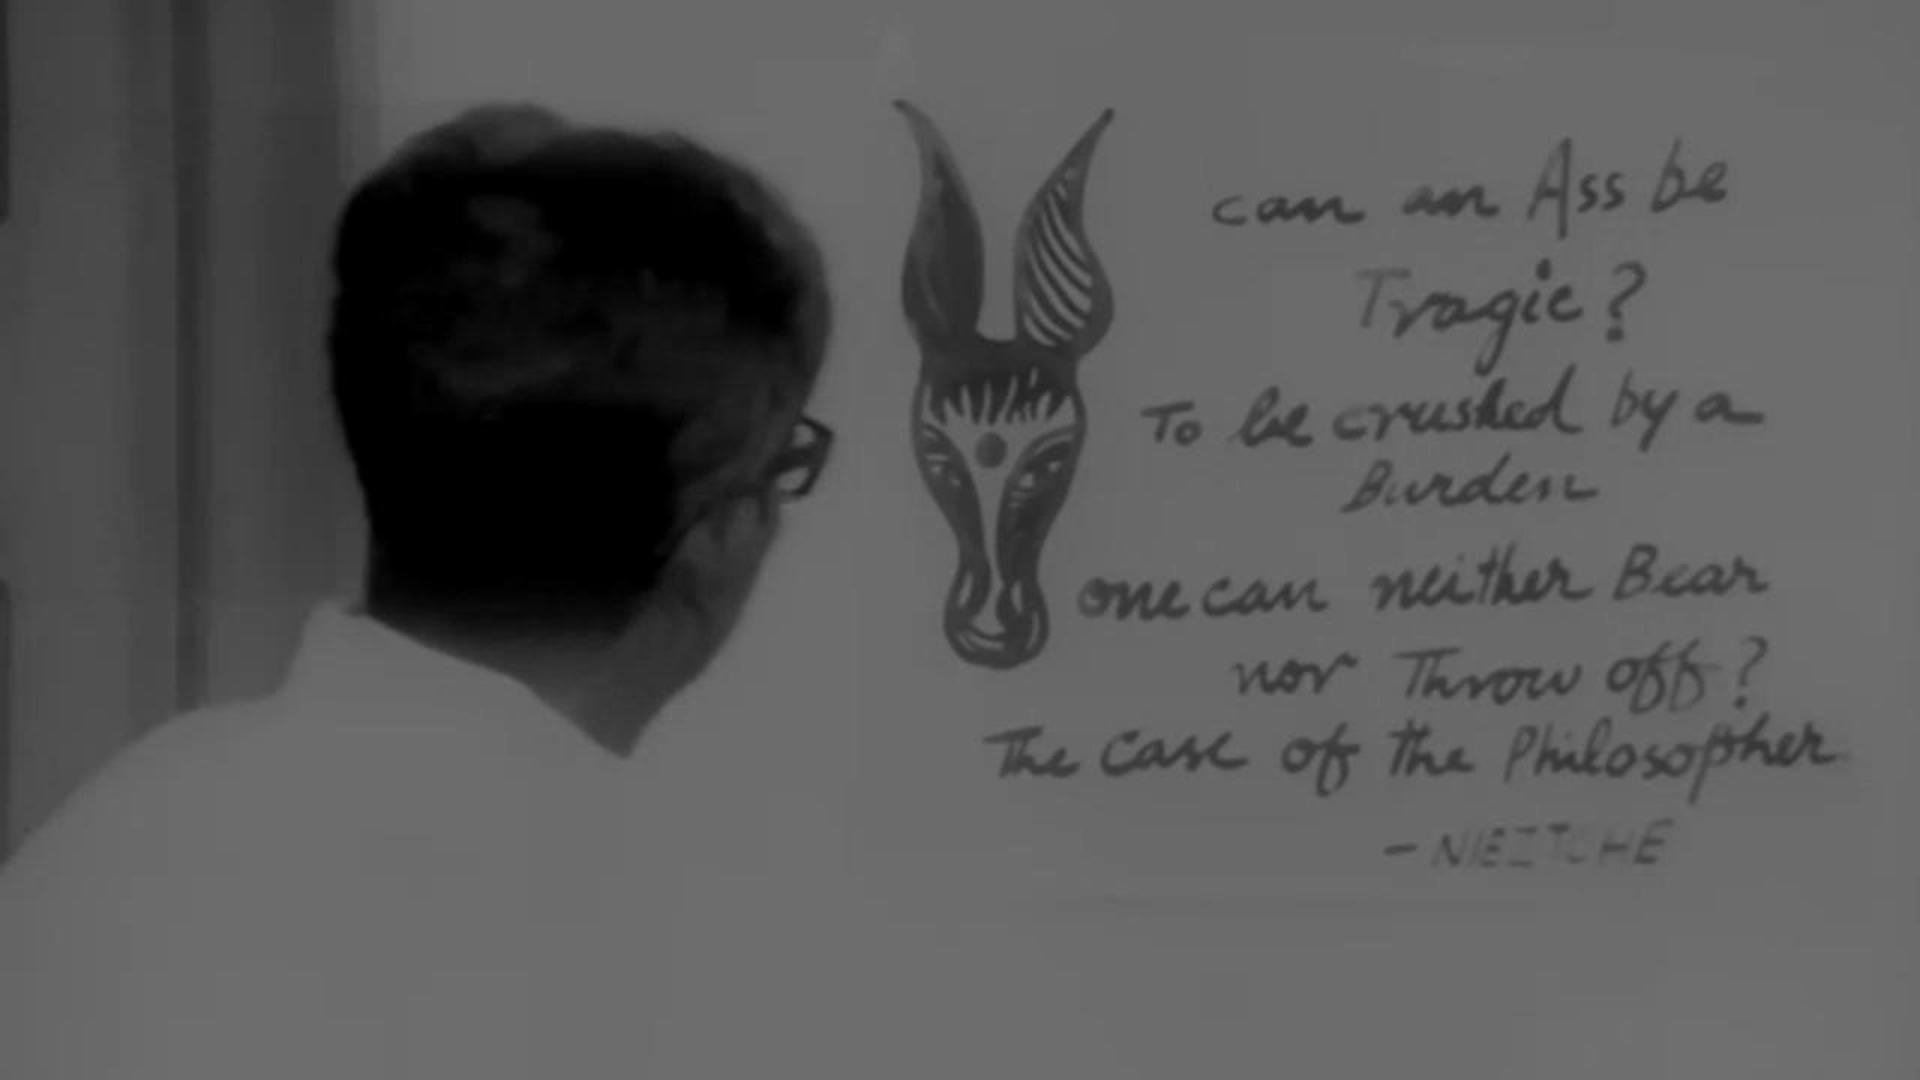 can an Ass be
Tragic?
To be crushed by a
Burden
one can neither Bear
nor Throw off?
The Case of the Philosopher
- NIEZTCHE